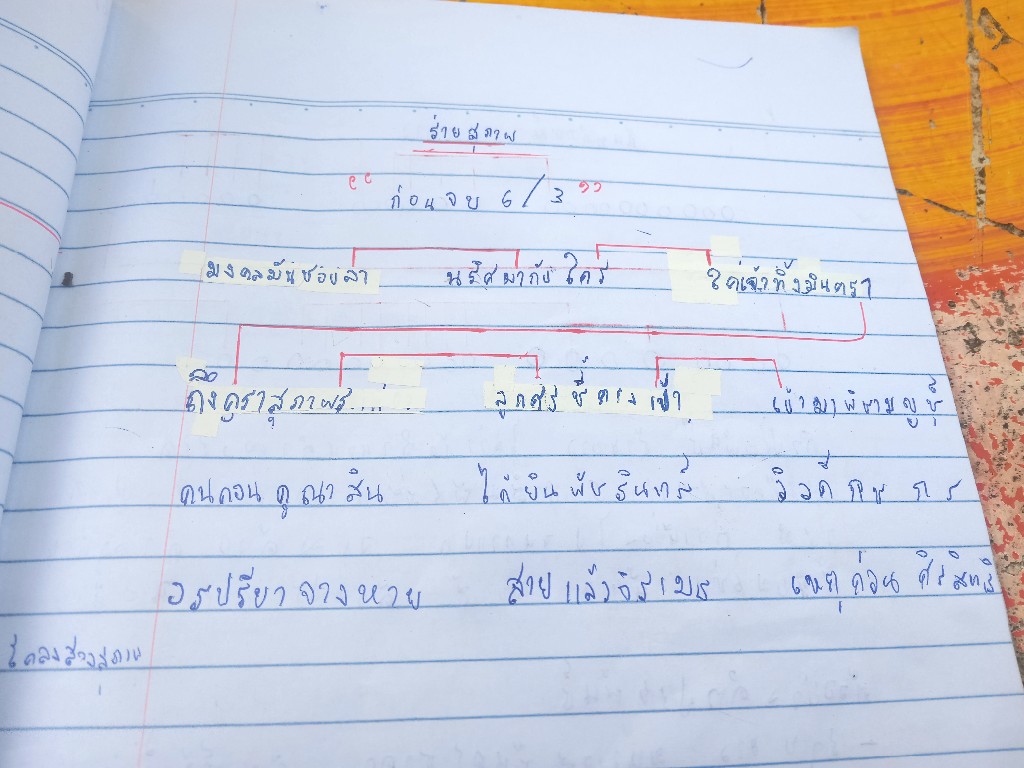 ร่ายสุภาพ
“ก่อนจบ 6/3”
มงคลมันซอยลา นริศมากับใคร ใคเจ้าทิ้งมินตรา
ถึงคูราสุภาพร ลูกศรชี้ทางเข้า เข้ามาพิชามญชุ์
คนคอนคุณาสิน ได้ยินพัชรินทร์
อรปรียาจางหาย สายแล้วจิรเมธ เหตุก่อนศิริสิทธิ
โคลงสองสุภาพ